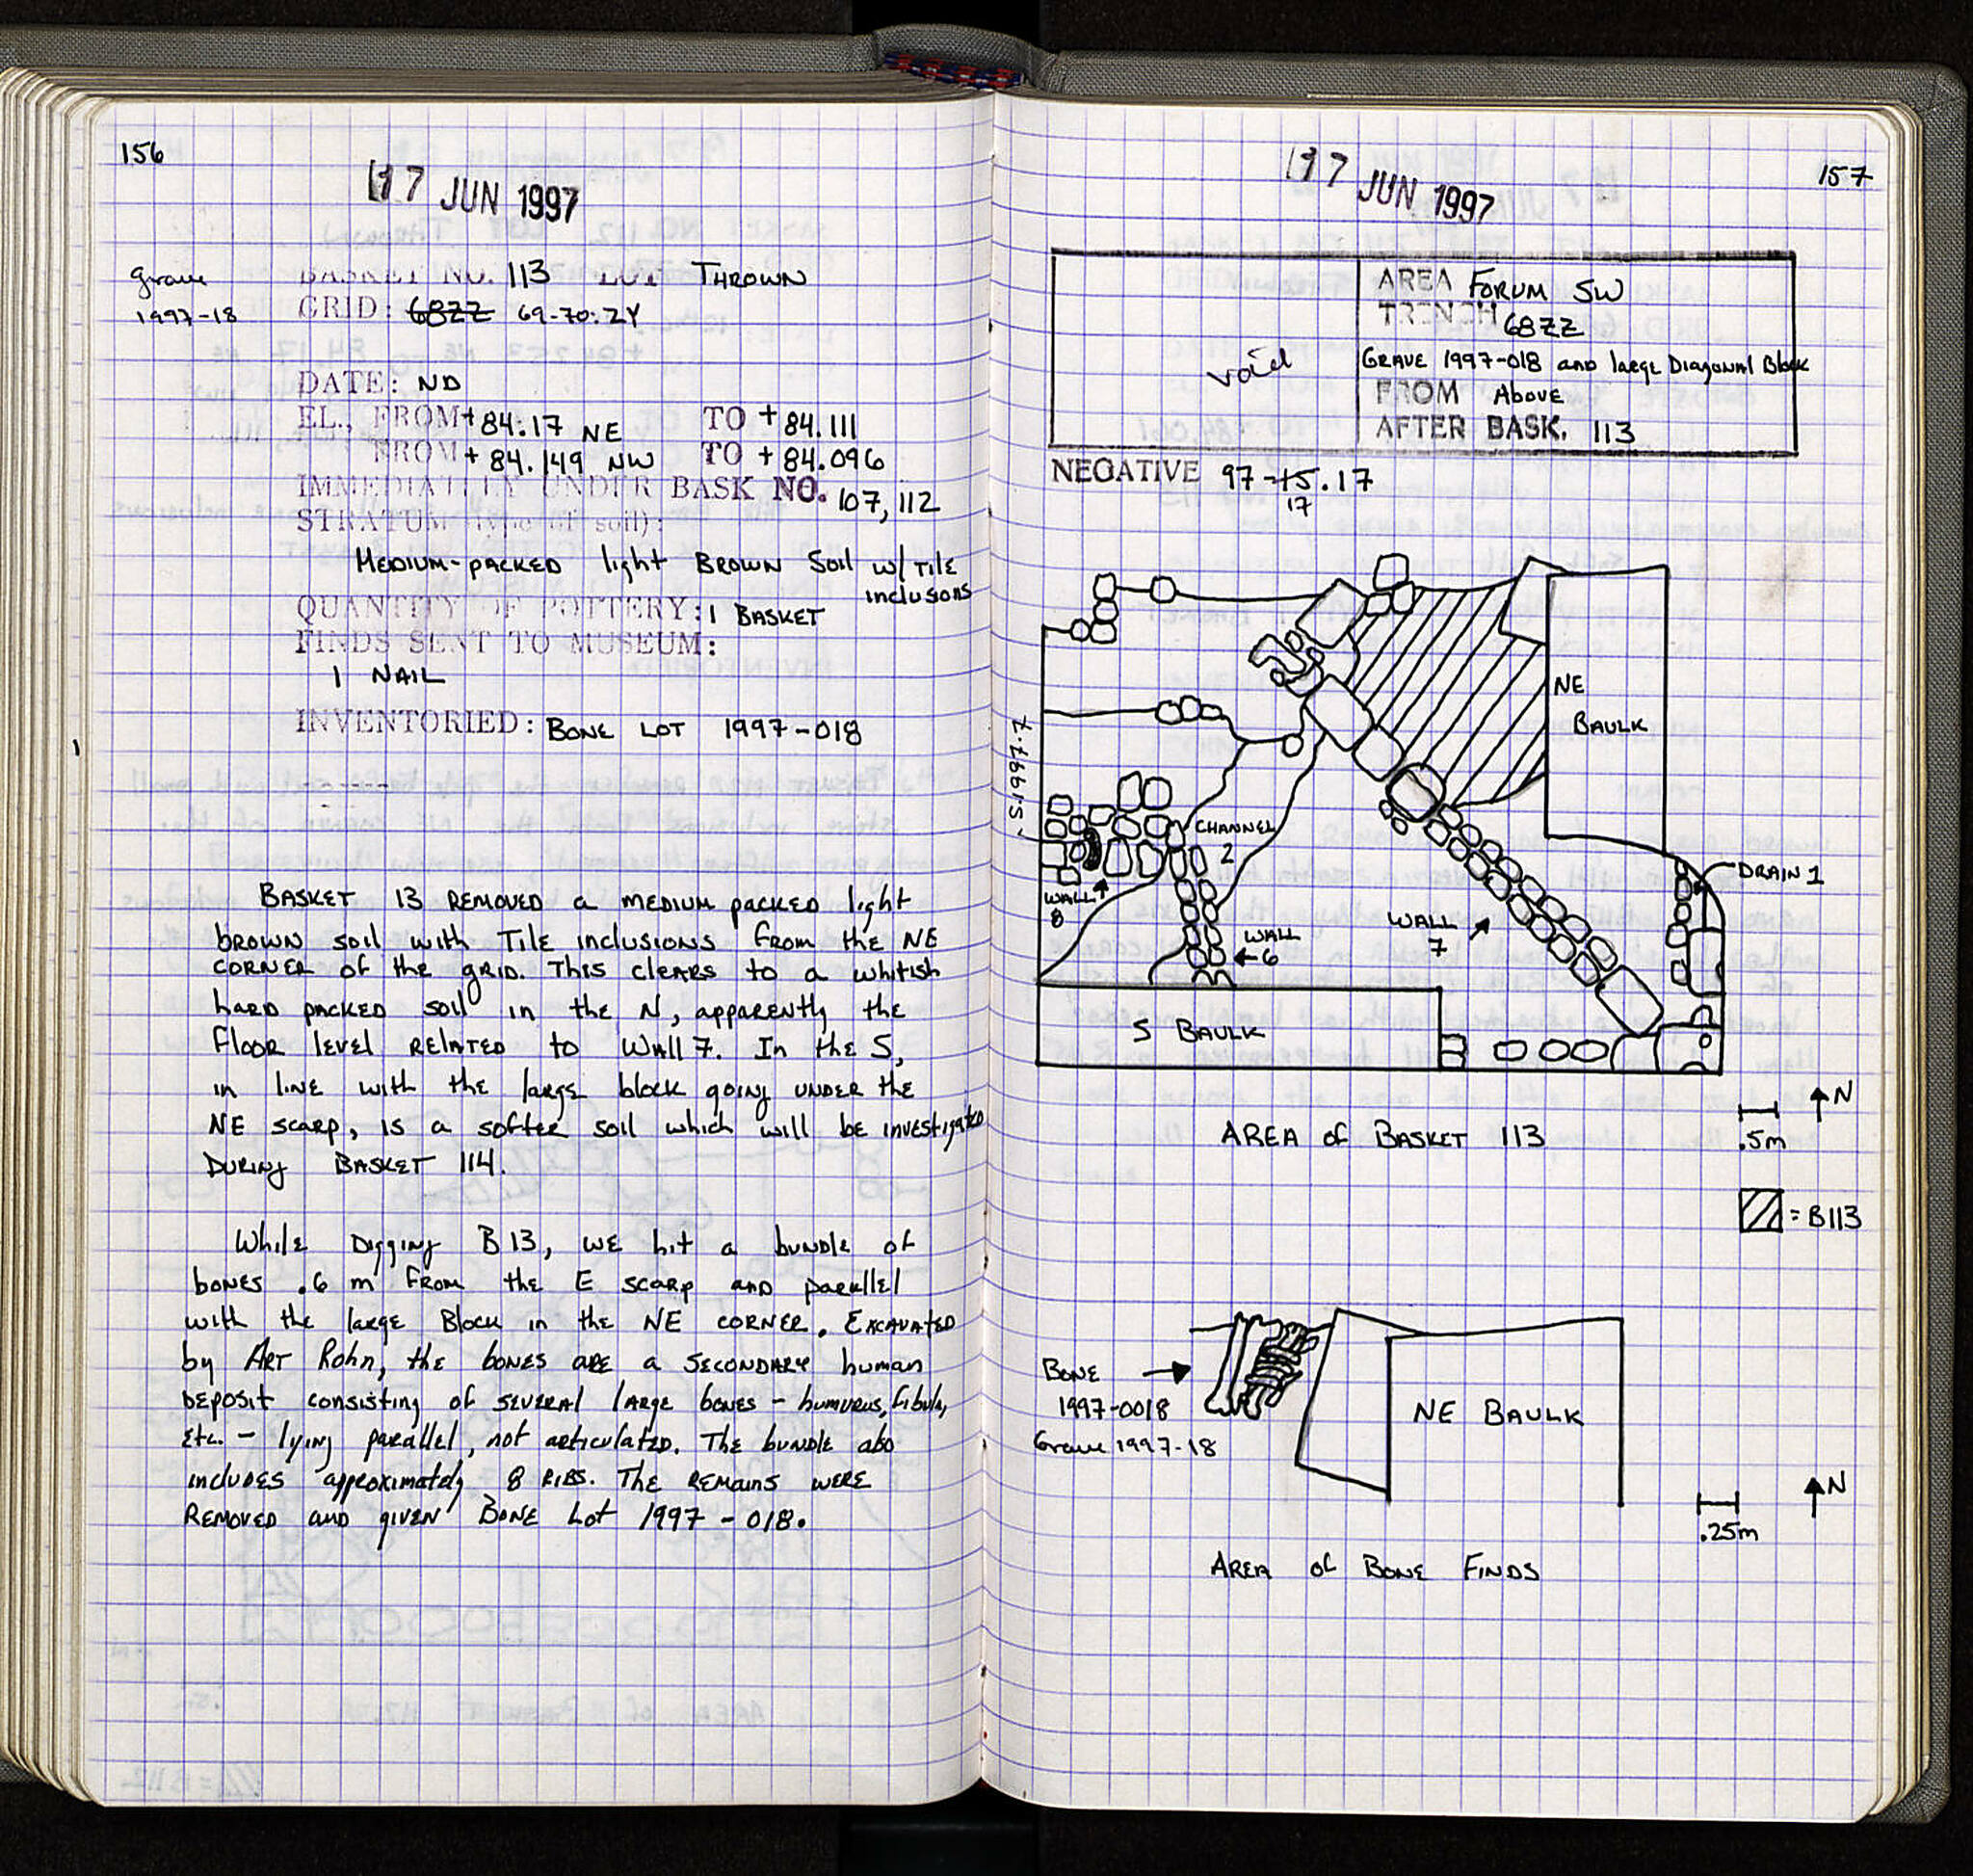 156
17 JUN 1997
grave
1997-18
BASKET NO. 113 LOT THROWN
GRID: 68ZZ 69-70:ZY
DATE: ND
EL., FROM +84.17 NE TO +84.111
FROM +84.149 NW TO +84.096
IMMEDIATELY UNDER BASK NO. 107, 112
STRATUM (type of soil):
MEDIUM-PACKED light BROWN Soil w/ TILE
inclusions
QUANTITY OF POTTERY: 1 BASKET
FINDS SENT TO MUSEUM:
1 NAIL
INVENTORIED: BONE LOT 1997-018
BASKET 13 REMOVED a MEDIUM packed light
BROWN soil with Tile inclusions from the NE
CORNER of the grid. This clears to a whitish
hard packed soil in the N, apparently the
floor level RELATED to Wall 7. In the S,
in line with the large block going under the
NE scarp, is a softer soil which will be investigated
During BASKET 114.
While Digging B13, we hit a bundle of
bones .6 m from the E scarp and parallel
with the large Block in the NE CORNER. Excavated
by Art Rohn, the bones are a SECONDARY human
Deposit consisting of several large bones - humurus, fibula,
etc. - lying parallel, not articulated. The bundle also
includes approximately 8 RIBS. The remains were
Removed and given Bone Lot 1997-018.
157
17 JUN 1997
void
AREA FORUM SW
TRENCH 68ZZ
GRAVE 1997-018 and large Diagonal Block
FROM Above
AFTER BASK. 113
NEGATIVE 97-15.17
17
NE
BAULK
~S.1997.7
CHANNEL
2
DRAIN 1
WALL
8
WALL
7
WALL
6
S BAULK
N
.5m
AREA of BASKET 113
= B113
BONE
1997-0018
Grave 1997-18
NE BAULK
N
.25m
AREA of BONE FINDS